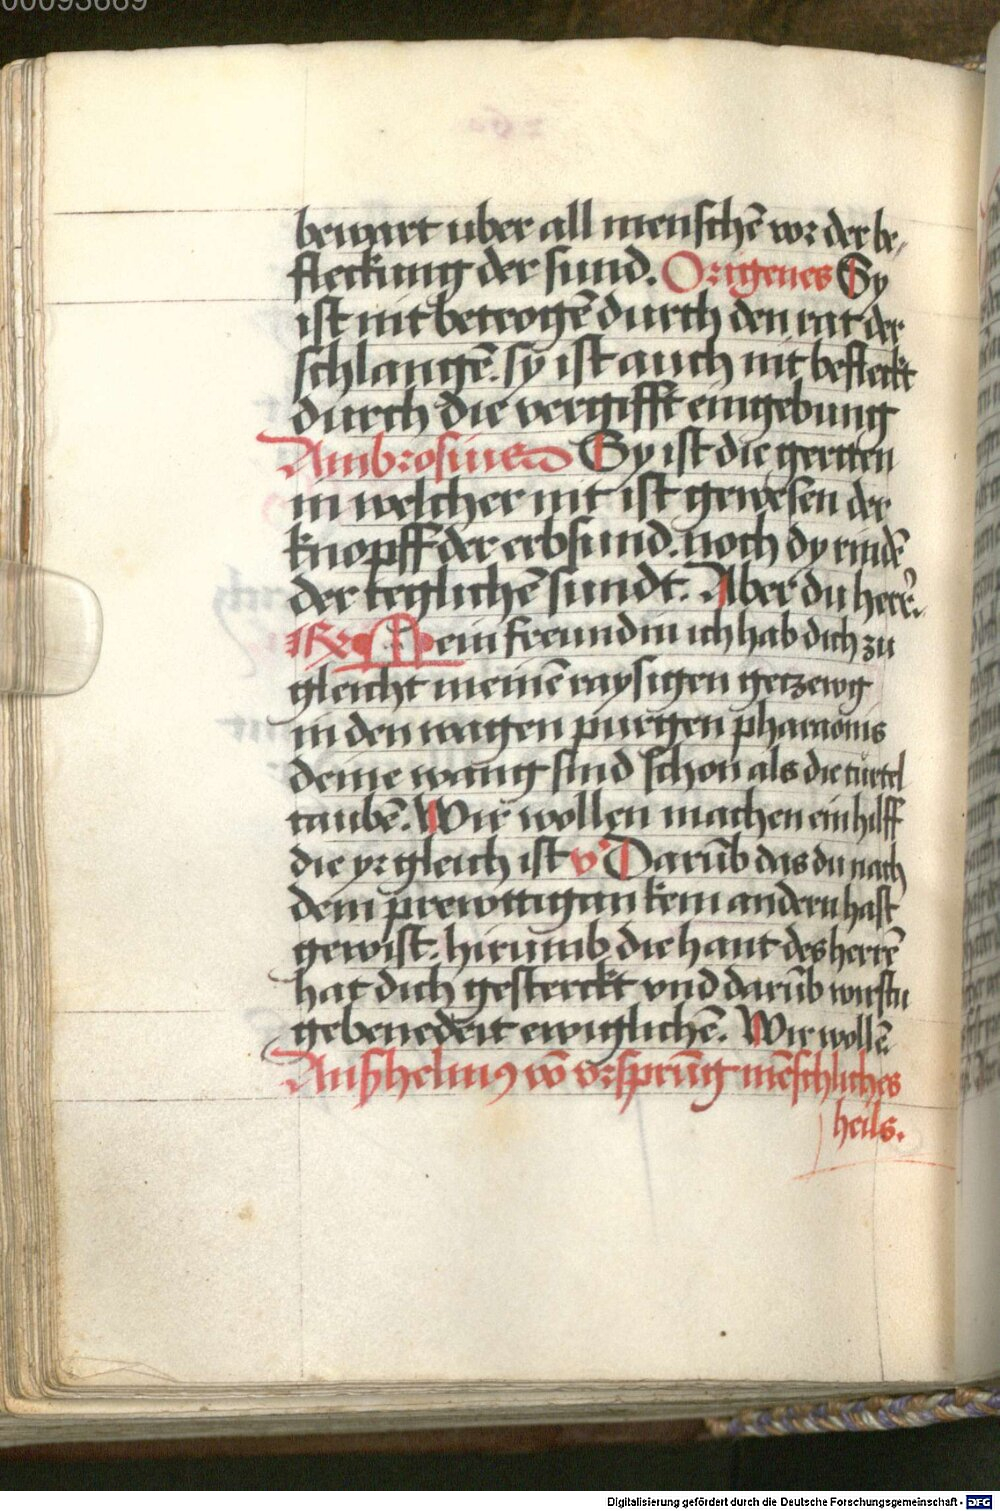 00093669
bewart uber all menschē vor der be-
fleckung der sund. Origenes Sy
ist nit betrogē durch den rat der
schlangē. sy ist auch nit befleckt
durch die vergifft eingebung
Ambrosius Sy ist die gertten
in welcher nit ist gewesen der
knopff der erbsund. noch dy rindē
der teglichē sundt. Aber du herr.
R Mein freundin ich hab dich zu
gleicht meinē raysigen getzewg
in den wagen purgen pharaonis
deine wang sind schon als die turtel
taubē. Wir wollen machen ein hilff
die yr gleich ist v Darūb das du nach
dem prewttigan kein andern hast
gewist. hirumb die hant des herrē
hat dich gesterckt vnd darūb wirstu
gebenedeit ewiglichē. Wir wollē
Anßhelmus vō vrsprūng mēschliches
heils.
Digitalisierung gefördert durch die Deutsche Forschungsgemeinschaft - DFG